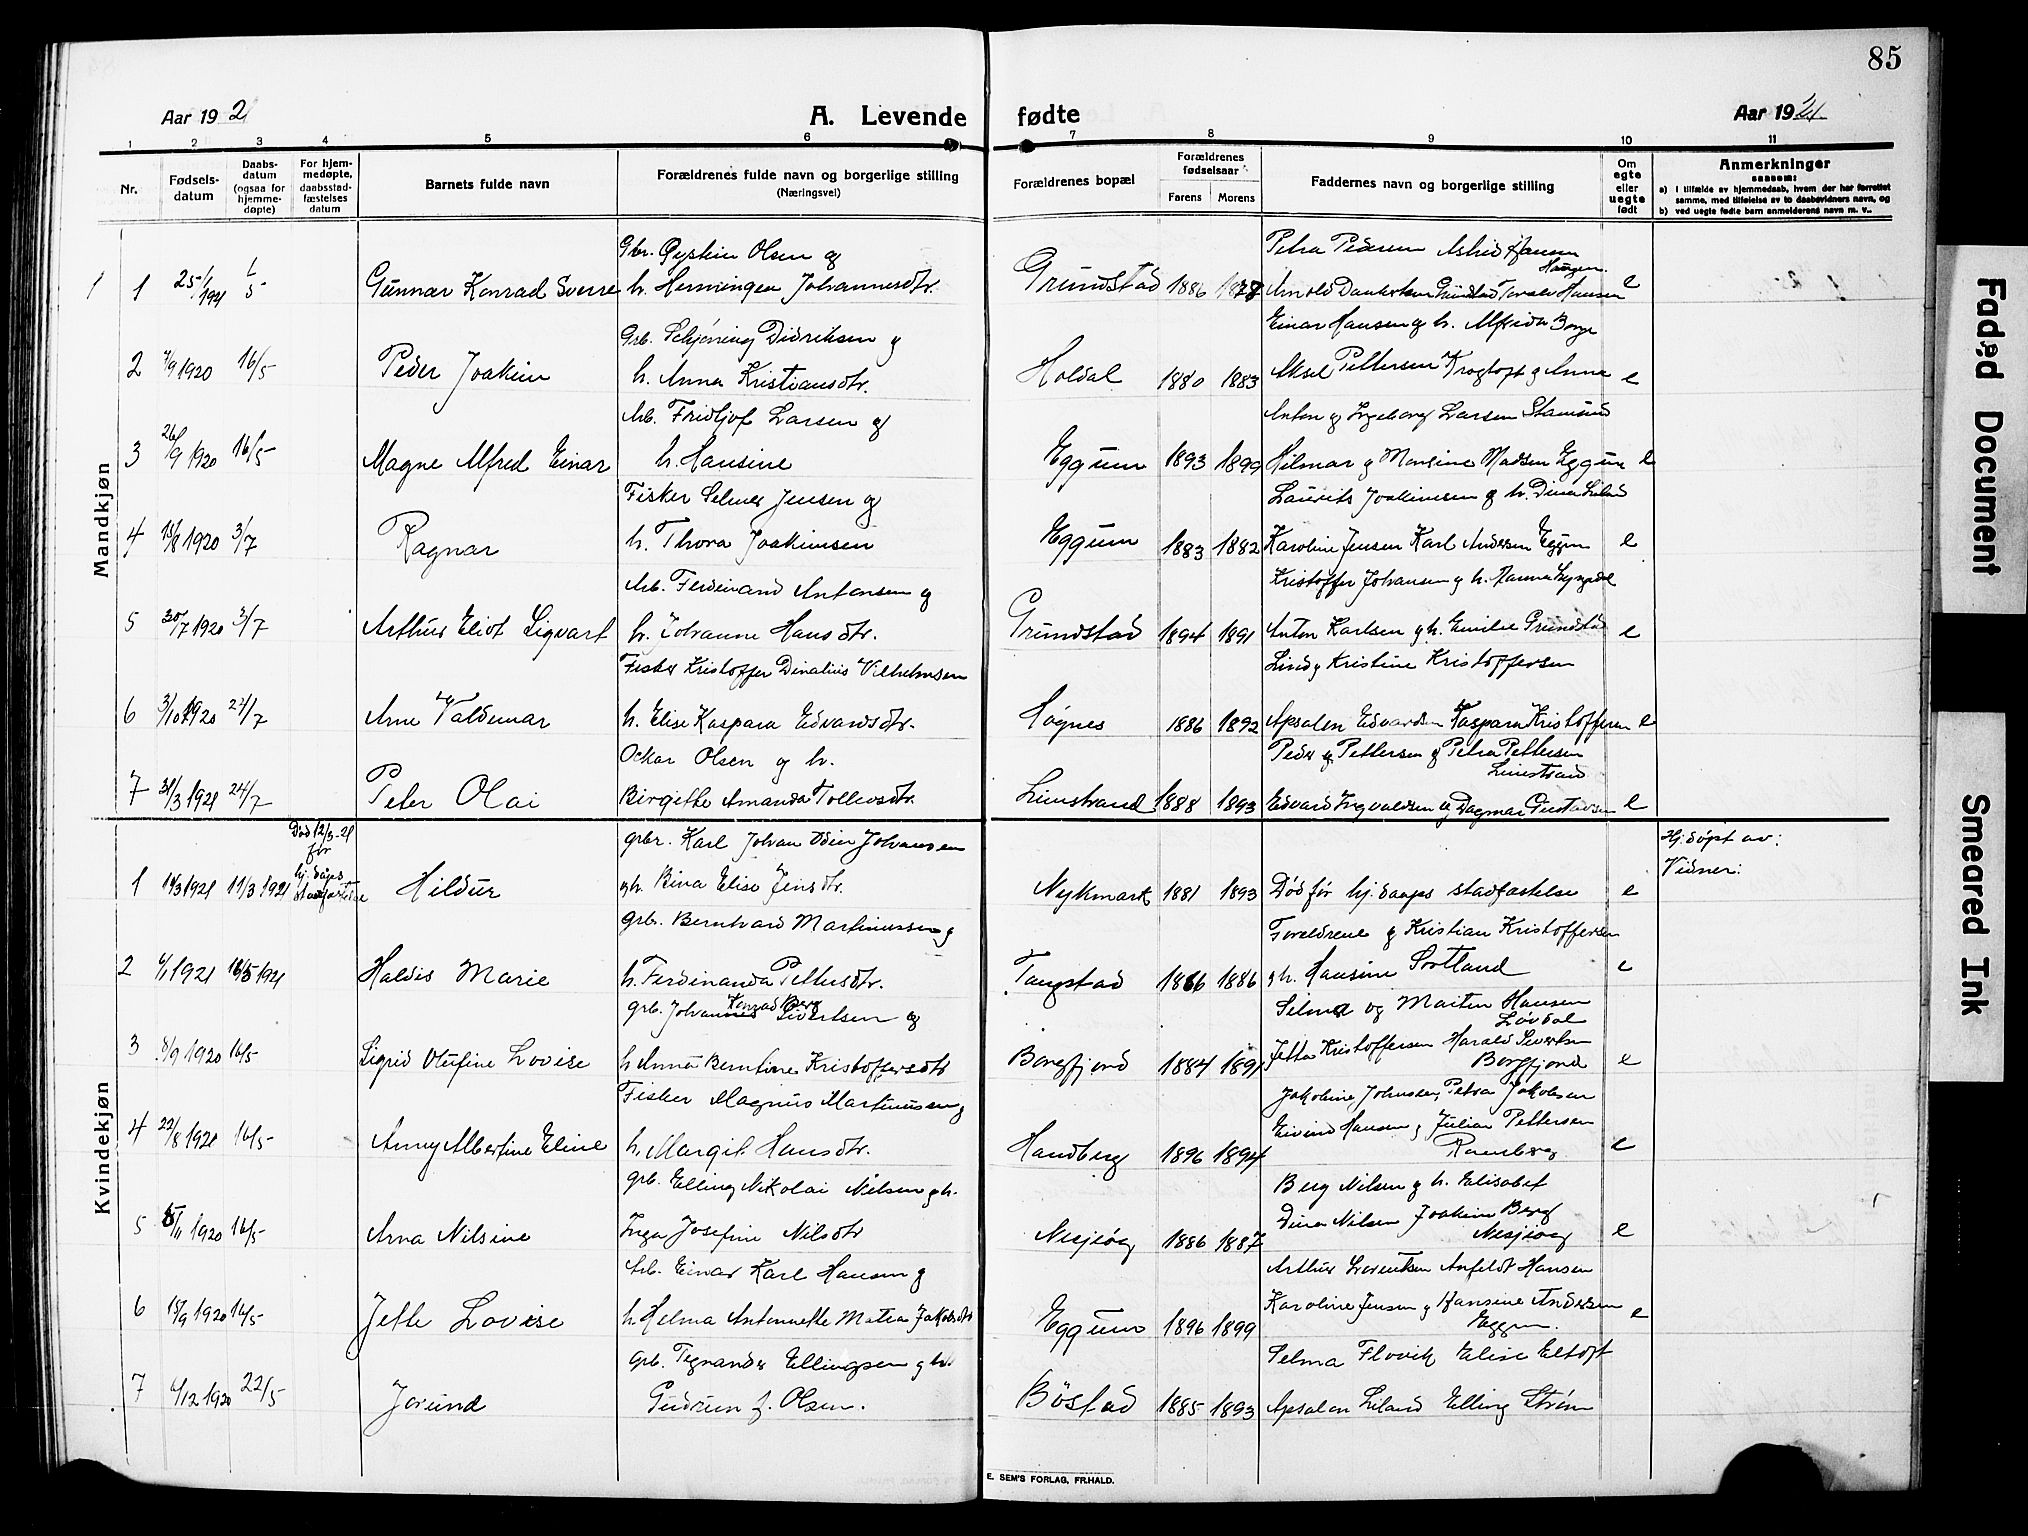 85
Aar 1921 A. Levende fødte Aar 1921
1 2 3 4 5 6 7 8 9 10 11
Nr. Fødselsdatum Daabsdatum (ogsaa for hjemmedøpte) For hjemmedøpte, daabsstadfæstelses datum Barnets fulde navn Forældrenes fulde navn og borgerlige stilling (Næringsvei) Forældrenes bopæl Forældrenes fødselsaar Farens Morens Faddernes navn og borgerlige stilling Om egte eller uegte født Anmerkninger saasom:
a) i tilfælde av hjemmedaab, hvem der har forrettet samme, med tilføielse av to daabsvidners navn, og
b) ved uegte fødte barn anmelderens navn m. v.
Mandkjøn
Gbr. Øystein Olsen og Petra Pedersen Astrid Hansen
Haugen
1 1 25/1 1921 1/5 Gunnar Konrad Sverre h. Henningea Johannesdtr. Grundstad 1886 1878 Arnold Grundstad Toralv Hansen e
Grb. Schjøning Didriksen og Einar Hansen og h. Alfrida Borge
2 7/9 1920 16/5 Peder Joakim h. Anna Kristiansdtr. Holdal 1880 1883 Aksel Pettersen Krogtoft og Anna e
Arb. Fridtjof Larsen og Anton og Ingeborg Larsen Stamsund
3 26/9 1920 16/5 Magne Alfred Einar h. Hansine Eggum 1893 1899 Hilmar og Monsine Madsen Eggum e
Fisker Selmer Jensen og Laurits Joakimsen og h. Dina
4 15/8 1920 3/7 Ragnar h. Thora Joakimsen Eggum 1883 1882 Karoline Jensen Karl Andersen Eggum e
Arb. Ferdinand Antonsen og Kristoffer Johansen og h. Hanna
5 30/7 1920 3/7 Arthur Eliot Sigvart h. Johanne Hansdtr. Grundstad 1894 1891 Anton Karlsen og h. Emilie Grundstad e
Fisker Kristoffer Dinalius Vilhelmsen Lind og Kristine Kristoffersen
6 3/10 1920 24/7 Arne Valdemar h. Elise Kaspara Edvardsdtr. Høynes 1886 1892 Apsalon Edvardsen Kaspara Kristoffersen e
Oskar Olsen og h. Peder og Pettersen og Petra Pettersen
Limstrand
7 31/3 1921 24/7 Peter Olai Birgitte Amanda Tollevsdtr. Limstrand 1888 1893 Edvard Ingvaldsen og Dagmar Gustavsen e
Kvindekjøn
Død 12/3-21 før hj.daaps stadfæstelse grbr. Karl Johan Odin Johansen Hj.døpt av:
Vidner:
1 14/3 1921 11/3 1921 Hildur og h. Bina Elise Jensdtr. Nykmark 1881 1893 Død før hj.daaps stadfæstelse e
grb. Bernhard Martinussen og Foreldrene og Kristian Kristoffersen
2 6/1 1921 16/5 1921 Haldis Marie h. Ferdinanda Pettersdtr. Tangstad 1866 1886 og h. Hansine Sortland e
grb. Johannes Konrad Berg Sivertsen og Selma og Martin Hansen
Løvdal
3 8/9 1920 16/5 Sigrid Olufine Lovise h. Anna Berntine Kristoffersdtr Borgfjord 1884 1891 Jetta Kristoffersen Harald Sivertsen
Borgfjord e
Fisker Magnus Martinussen og Jakobine Johnsen, Petra Jakobsen
4 22/8 1920 16/5 Anny Albertine Eline h. Margit Hansdtr. Handberg 1896 1894 Eivind Hansen og Julian Pettersen
Ramsberg e
grb. Elling Nikolai Nilsen og h. Berg Nilsen og h. Elisabet
5 5/11 1920 16/5 Arna Nilsine Inga Josefine Nilsdtr Nesjeøy 1886 1887 Dina Nilsen Joakim Berg
Nesjeøy e
Arb. Einar Karl Hansen og Arthur Lorentsen Anfeldt Hansen
6 15/9 1920 16/5 Jette Lovise h. Helma Antonette Matea Jakobsdtr Eggum 1896 1899 Karoline Jensen og Hansine Andersen
Eggum. e
grb. Tegnander Ellingsen og h. Selma Flovik Elise Eltoft
7 6/12 1920 22/5 Jorund Gudrun J. Olsen. Bøstad 1885 1893 Apsalon Liland Elling Strøm
E. SEM'S FORLAG, FR.HALD.
Faded Document
Smeared Ink